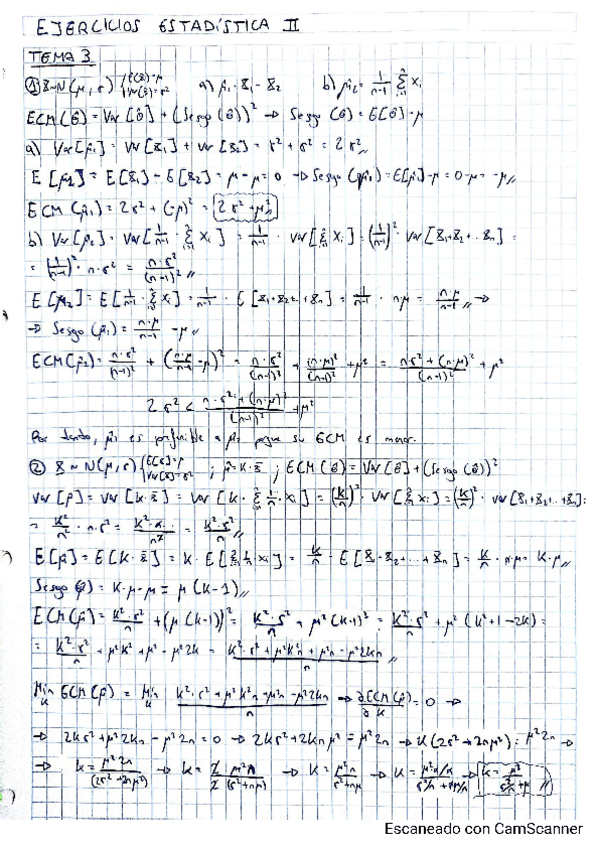 EJERCICIOS ESTADÍSTICA II
TEMA 3
① X~N(μ, σ) / E(X)=μ Var(X)=σ² a) μ̂₁ = X₁ - X₂ b) μ̂₂ = 1/(n-1) Σ Xi
ECM(θ̂) = Var[θ̂] + (Sesgo(θ̂))² → Sesgo(θ̂) = E[θ̂] - μ
a) Var[μ̂₁] = Var[X₁] + Var[X₂] = σ² + σ² = 2σ²
E[μ̂₂] = E[X₁] - E[X₂] = μ - μ = 0 → Sesgo(μ̂₁) = E[μ̂] - μ = 0 - μ = -μ
ECM(μ̂₁) = 2σ² + (-μ)² = 2σ² + μ²
b) Var[μ̂₂] = Var[1/(n-1) · Σ Xi] = 1/(n-1) · Var[Σ Xi] = (1/(n-1))² · Var[X₁+X₂+...Xn] =
= (1/(n-1))² · n·σ² = n·σ²/(n-1)²
E[μ̂₂] = E[1/(n-1) · Σ Xi] = 1/(n-1) · E[X₁+X₂+...+Xn] = 1/(n-1) · nμ = n·μ/(n-1) →
→ Sesgo(μ̂₁) = n·μ/(n-1) - μ
ECM(μ̂₂) = n·σ²/(n-1)² + (n·μ/(n-1) - μ)² = n·σ²/(n-1)² + (n·μ)²/(n-1)² + μ² = n·σ² + (n·μ)²/(n-1)² + μ²
2σ² < n·σ² + (n·μ)²/(n-1)² + μ²
Por tanto, μ̂₁ es preferible a μ̂₂ porque su ECM es menor.
② X ~ N(μ, σ) / E[X]=μ Var[X]=σ² ; μ̂ = K·x̄ ; ECM(θ̂) = Var[θ̂] + (Sesgo(θ̂))²
Var[μ̂] = Var[K·x̄] = Var[K · Σ 1/n · Xi] = (K/n)² · Var[Σ Xi] = (K/n)² · Var[X₁+X₂+...+Xn] =
= K²/n² · n·σ² = = K²·σ²/n
E[μ̂] = E[K·x̄] = K · E[Σ 1/n · Xi] = K/n · E[X₁+X₂+...+Xn] = K/n · n·μ = K·μ
Sesgo(μ̂) = K·μ - μ = μ(K-1)
ECM(μ̂) = K²·σ²/n + (μ(K-1))² = K²·σ²/n + μ²(K-1)² = K²·σ²/n + μ²(K²+1-2K) =
= K²·σ²/n + μ²K² + μ² - μ²2K = K²·σ² + μ²K²n + μ²n - μ²2Kn/n
Min K ECM(μ̂) = Min K K²·σ² + μ²K²n + μ²n - μ²2Kn/n → ∂ECM(μ̂)/∂K = 0 →
→ 2Kσ² + μ²2Kn - μ²2n = 0 → 2Kσ² + 2Knμ² = μ²2n → K(2σ² + 2nμ²) = μ²2n →
→ K = μ²2n/(2σ² + 2nμ²) → K = 2 μ²n/2 (σ² + nμ) → K = μ²n/σ²+nμ → K = μ²n/n/σ²/n + nμ/n → K = μ²/σ²/n + μ
Escaneado con CamScanner